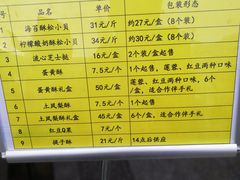 品名 单价 包装形态
1 海苔酥松小贝 31元/斤 约27元/盒（8个装）
2 柠檬酸奶酥松小贝 34元/斤 约30元/盒（8个装）
3 流心芝士挞 16元/盒 2个装/盒起售
4 蛋黄酥 7.5元/个 1个起售，莲蓉、红豆两种口味
5 蛋黄酥礼盒 50元/盒 莲蓉、红豆两种口味，6个/盒，适合作伴手礼
6 土凤梨酥 7.5元/个 1个起售
7 土凤梨酥礼盒 45元/盒 6个/盒，适合作伴手礼
8 红豆Q果 7元/个
9 提牛酥 21元/斤 14点后供应